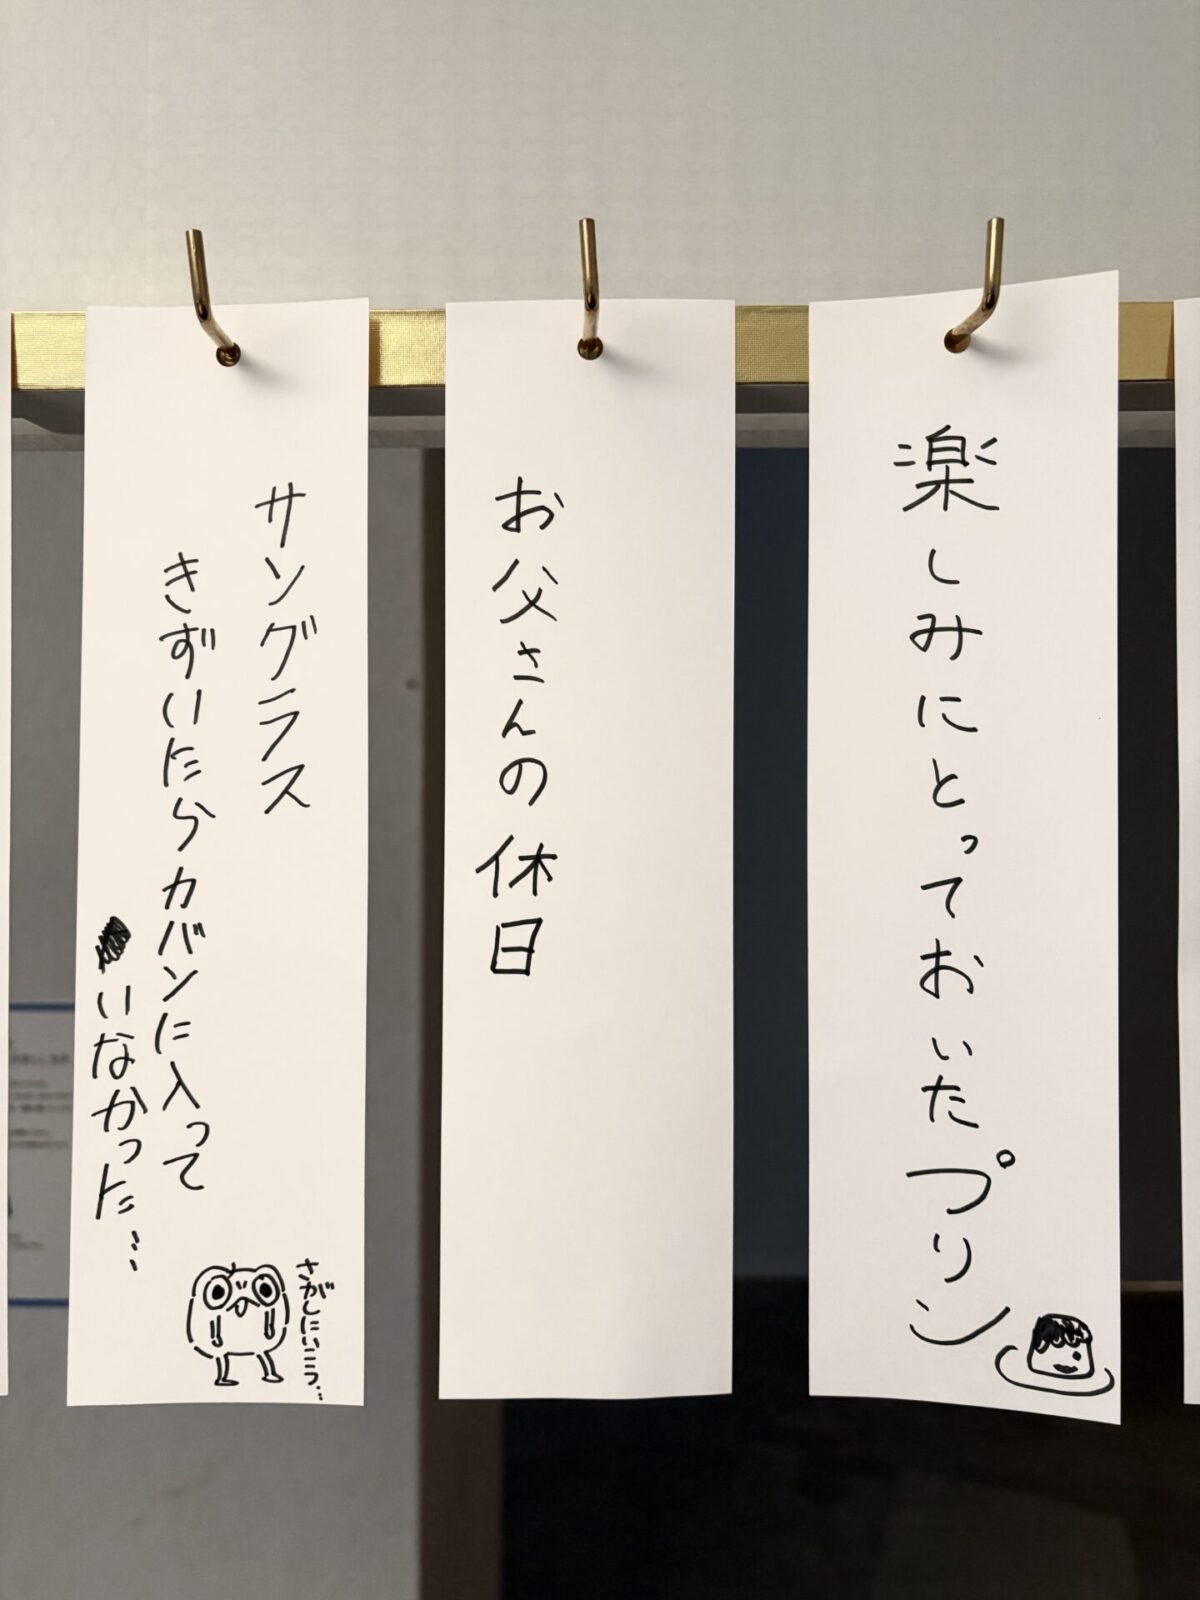 楽しみにとっておいたプリン
お父さんの休日
サングラス
きずいたらカバンに入って
いなかった…
さがしにいこう…